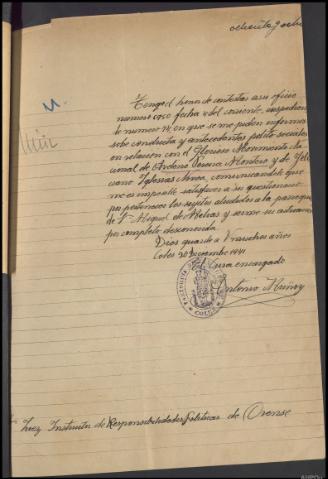 ochenta y ocho
Tengo el honor de contestar a su oficio
número 1050 fecha 4 del corriente, expediente
número 71, en que se me piden informes
sobre conducta y antecedentes político-sociales
en relación con el Glorioso Movimiento Na-
cional de Antonio Pereira Montero y de Feli-
ciano Iglesias Nóvoa, comunicándole que
me es imposible satisfacer a su cuestionario
por pertenecer los sujetos aludidos a la parroquia
de Sn. Miguel de Melias y serme su actuación
por completo desconocida.
Dios guarde a V. muchos años
Coles 20 Diciembre 1941
El Cura encargado
Antonio Muñoz
COLES
Juez Instructor de Responsabilidades Políticas de Orense